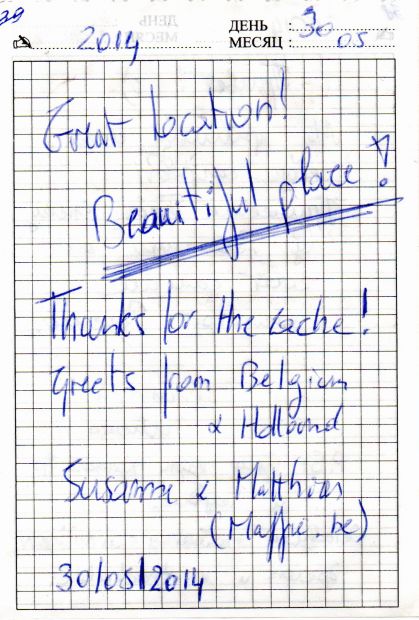 39
2014 ДЕНЬ : 30
МЕСЯЦ : 05
Great location!
Beautiful place!
Thanks for the cache!
Greets from Belgium
& Holland
Susanna & Matthias
30/05/2014